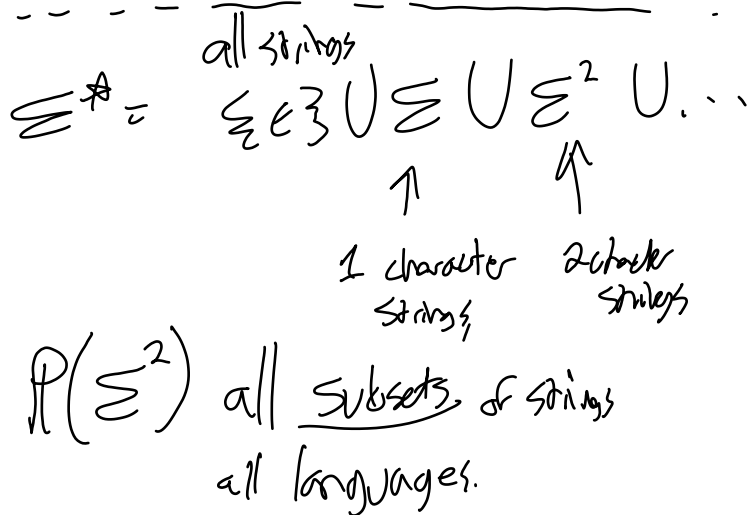 all strings
Σ* = {ε} ∪ Σ ∪ Σ² ∪ ...
↑ ↑
1 character 2 character
strings strings
P(Σ²) all subsets of strings
all languages.